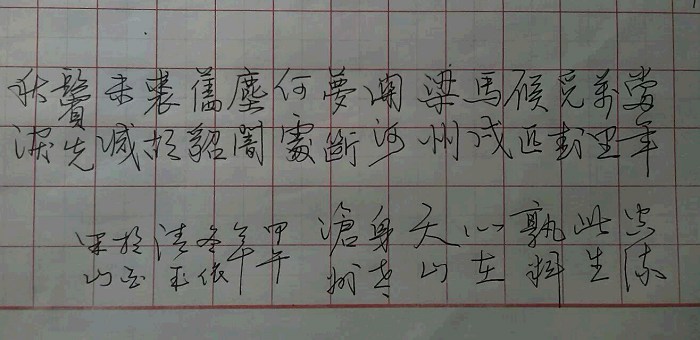 當年
萬里
覓封
候匹
馬戍
梁州
関河
夢斷
何處
塵闇
舊貂
裘胡
未滅
鬢先
秋淚
空流
此生
孰料
心在
天山
身老
滄州
甲午
年
冬依
清玉
於西
果山